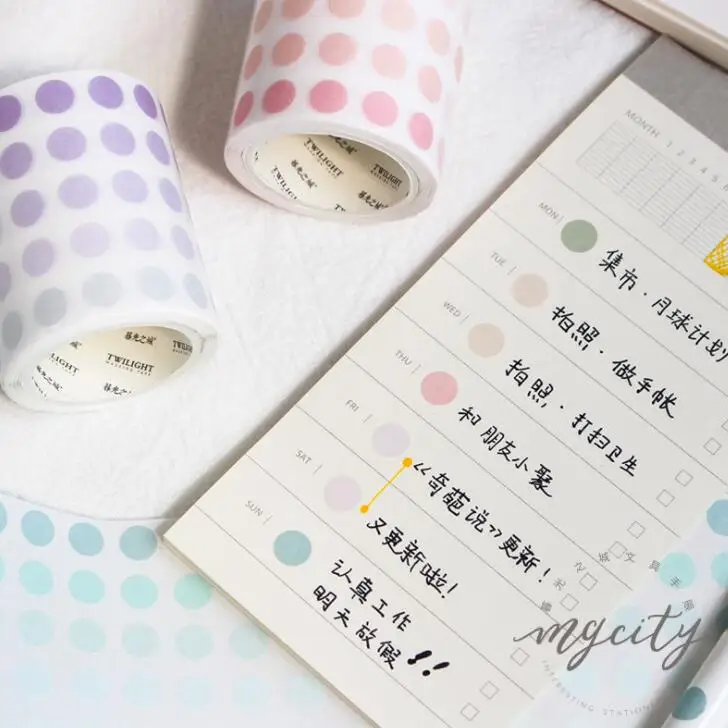 暮光之城
TWILIGHT
MASKING TAPE
暮光之城
TWILIGHT
MASKING TAPE
MONTH 1 2 3 4 5
MON 集市·月球计划
TUE 拍照·做手帐
WED 拍照·打扫卫生
THU 和朋友小聚
FRI 《奇葩说》更新!
SAT 又更新啦!
SUN 认真工作
明天放假!!
mycity
INTERESTING STATIONERY